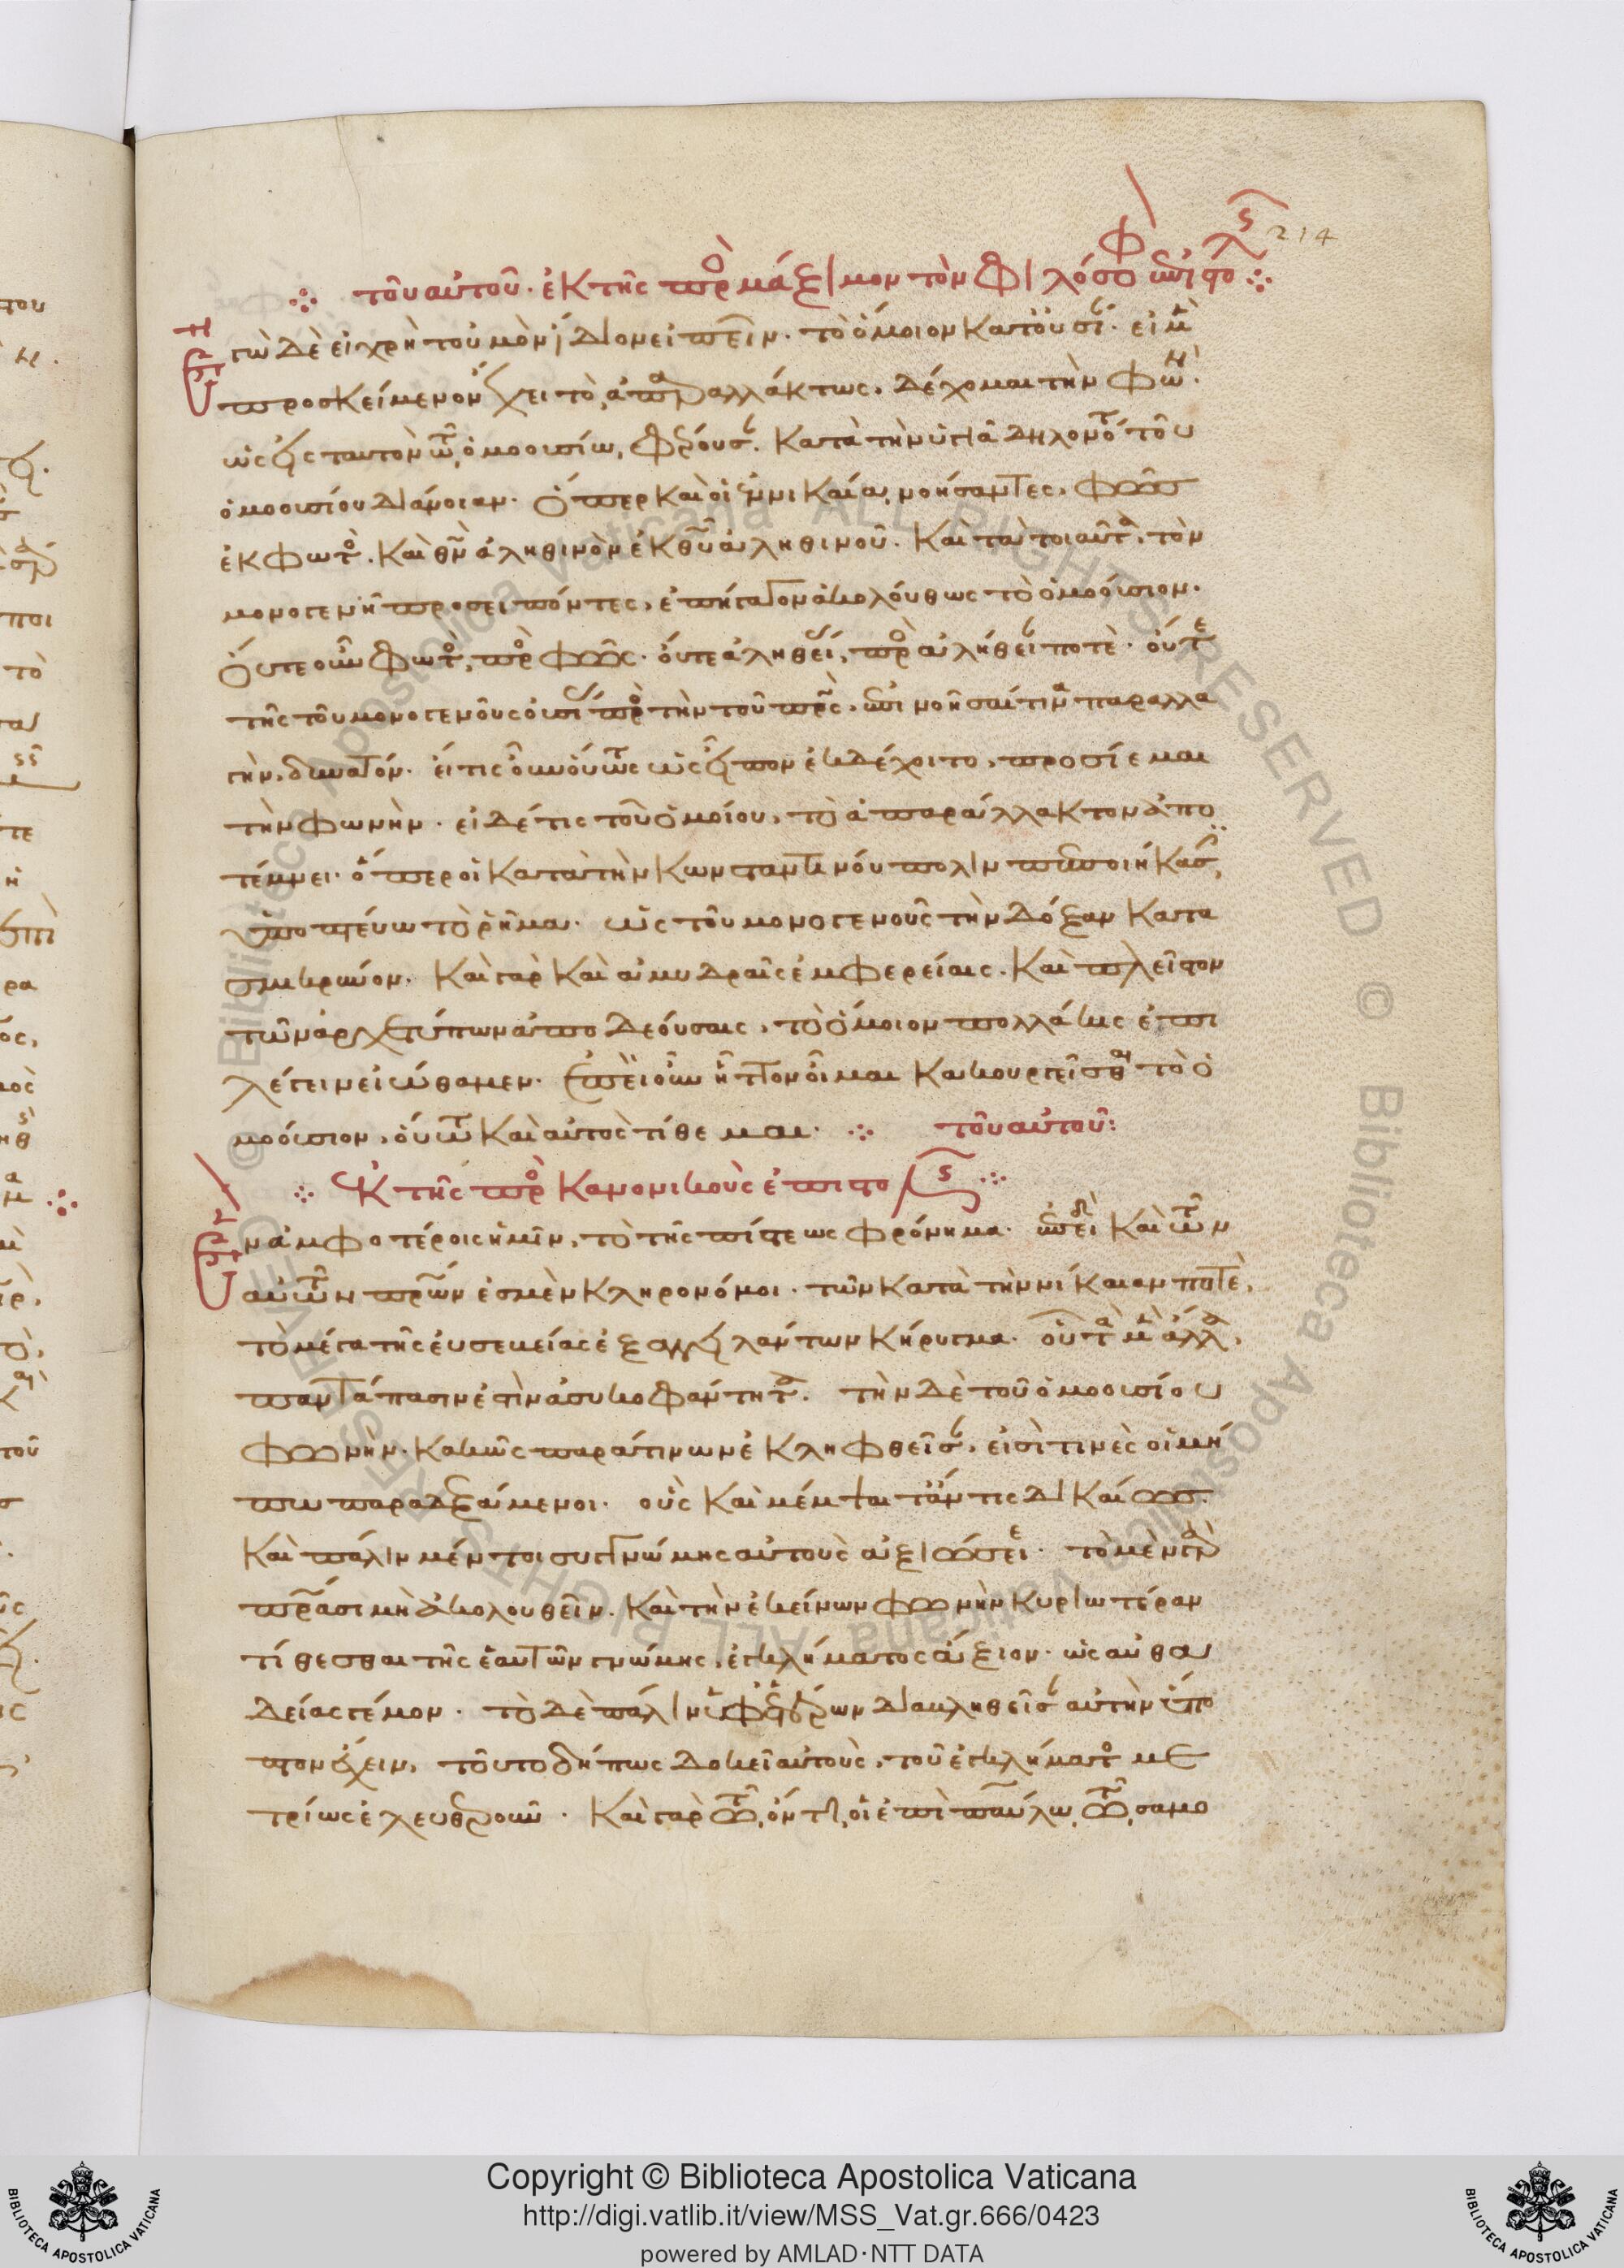 214
τοῦ αὐτοῦ· ἐκ τῆς πρὸς μάξιμον τὸν φιλόσοφον ἐπιστολῆς
ἐγὼ δὲ εἰ χρὴ τοὐμὸν ἴδιον εἰπεῖν· τὸ ὅμοιον κατ' οὐσίαν· εἰ μὲν
προσκείμενον ἔχει τὸ, ἀπαραλλάκτως, δέχομαι τὴν φωνήν·
ὡς εἰς ταυτὸν τῶ ὁμοουσίω φέρουσαν· κατὰ τὴν ὑγιᾶ δηλονότι τοῦ
ὁμοουσίου διάνοιαν· ὅπερ καὶ οἱ ἐν νικαία νοήσαντες, φῶς
ἐκ φωτός· καὶ θν ἀληθινὸν ἐκ θυ ἀληθινοῦ· καὶ τὰ τοιαῦτα, τὸν
μονογενῆ προσειπόντες, ἐπήγαγον ἀκολούθως τὸ ὁμοούσιον·
οὔτε οὖν φωτὸς πρὸς φῶς· οὔτε ἀληθείας, πρὸς ἀλήθειαν ποτὲ· οὔτε
τῆς τοῦ μονογενοῦς οὐσίας πρὸς τὴν τοῦ πρς, ἐπινοῆσαί τινα παραλλα
γὴν, δυνατόν· εἴ τις οὖν οὕτως ὡς εἶπον ἐκδέχοιτο, προσίεμαι
τὴν φωνὴν· εἰ δέ τις τοῦ ὁμοίου, τὸ ἀπαράλλακτον ἀπο
τέμνει· ὅπερ οἱ κατὰ τὴν κωνσταντινούπολιν πεποιήκασιν,
ὑποπτεύω τὸ ῥῆμα· ὡς τοῦ μονογενοῦς τὴν δόξαν κατα
σμικρύνον· καὶ γὰρ καὶ ἀμυδραῖς ἐμφερείαις· καὶ πλεῖστον
τῶν ἀρχετύπων ἀποδεούσαις, τὸ ὅμοιον πολλάκις ἐπι
λέγειν εἰώθαμεν· ἐπεὶ οὖν ἧττον οἶμαι κακουργεῖσθαι τὸ ὁ
μοούσιον, οὕτω καὶ αὐτὸς τίθεμαι· τοῦ αὐτοῦ:
ἐκ τῆς πρὸς κανονικοὺς ἐπιστολῆς
ἓν ἀμφοτέροις ἡμῖν, τὸ τῆς πίστεως φρόνημα· ἐπειδὴ καὶ τῶν
αὐτῶν πρων ἐσμὲν κληρονόμοι· τῶν κατὰ τὴν νίκαιαν ποτὲ,
τὸ μέγα τῆς εὐσεβείας ἐξαγγειλάντων κήρυγμα· οὗ τὰ μὲν ἄλλα,
πανταπασιν ἐστὶν ἀσυκοφάντητα. τὴν δὲ τοῦ ὁμοουσίου
φωνὴν· κακῶς παρά τινων ἐκληφθεῖσαν, εἰσὶ τινὲς οἱ μή
πω παραδεξάμενοι· οὓς καὶ μέμψαιτ' ἄν τις δικαίως·
καὶ πάλιν μέντοι συγγνώμης αὐτοὺς ἀξιώσειε· τὸ μὲν γὰρ
πράσι μὴ ἀκολουθεῖν· καὶ τὴν ἐκείνων φωνὴν κυριωτέραν
τίθεσθαι τῆς ἑαυτῶν γνώμης, ἐγκλήματος ἄξιον· ὡς αὐθα
δείας γέμον· τὸ δὲ πάλιν ὑφ' ἑτέρων διαβληθεῖσαν αὐτὴν ὕπο
πτον ἔχειν, τοῦτο δήπως δοκεῖ αὐτοὺς, τοῦ ἐγκλήματος με
τρίως ἐλευθεροῦν· καὶ γὰρ τῶ ὄντι, οἱ ἐπὶ παύλω τῶ σαμο
Copyright © Biblioteca Apostolica Vaticana
http://digi.vatlib.it/view/MSS_Vat.gr.666/0423
powered by AMLAD·NTT DATA
BIBLIOTECA APOSTOLICA VATICANA
BIBLIOTECA APOSTOLICA VATICANA